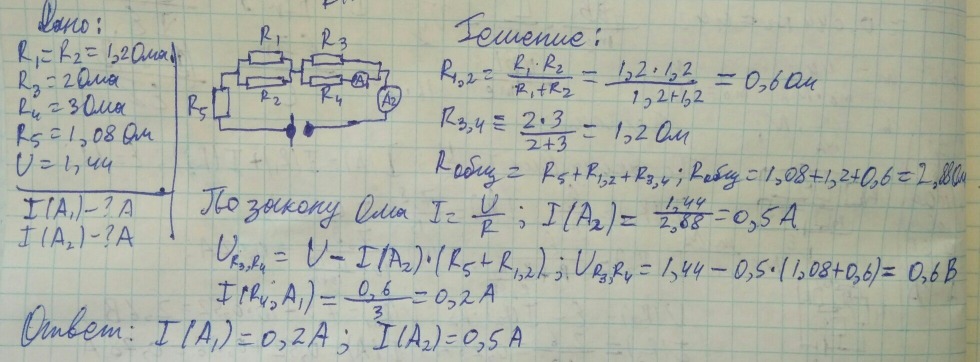 Дано:
R₁=R₂=1,2Ома.
R₃=2Ома
R₄=3Ома
R₅=1,08Ом
U=1,44
I(A₁)-?A
I(A₂)-?A
R₁ R₃
R₂ R₄ A
R₅ A₂
Решение:
R₁,₂ = R₁·R₂/R₁+R₂ = 1,2·1,2/1,2+1,2 = 0,6Ом
R₃,₄ = 2·3/2+3 = 1,2Ом
Rобщ = R₅+R₁,₂+R₃,₄; Rобщ=1,08+1,2+0,6=2,88Ом
По закону Ома I=U/R; I(A₂)=1,44/2,88=0,5A
U_R₃,R₄ = U-I(A₂)·(R₅+R₁,₂); U_R₃R₄=1,44-0,5·(1,08+0,6)=0,6В
I(R₄;A₁)=0,6/3=0,2A
Ответ: I(A₁)=0,2A; I(A₂)=0,5A